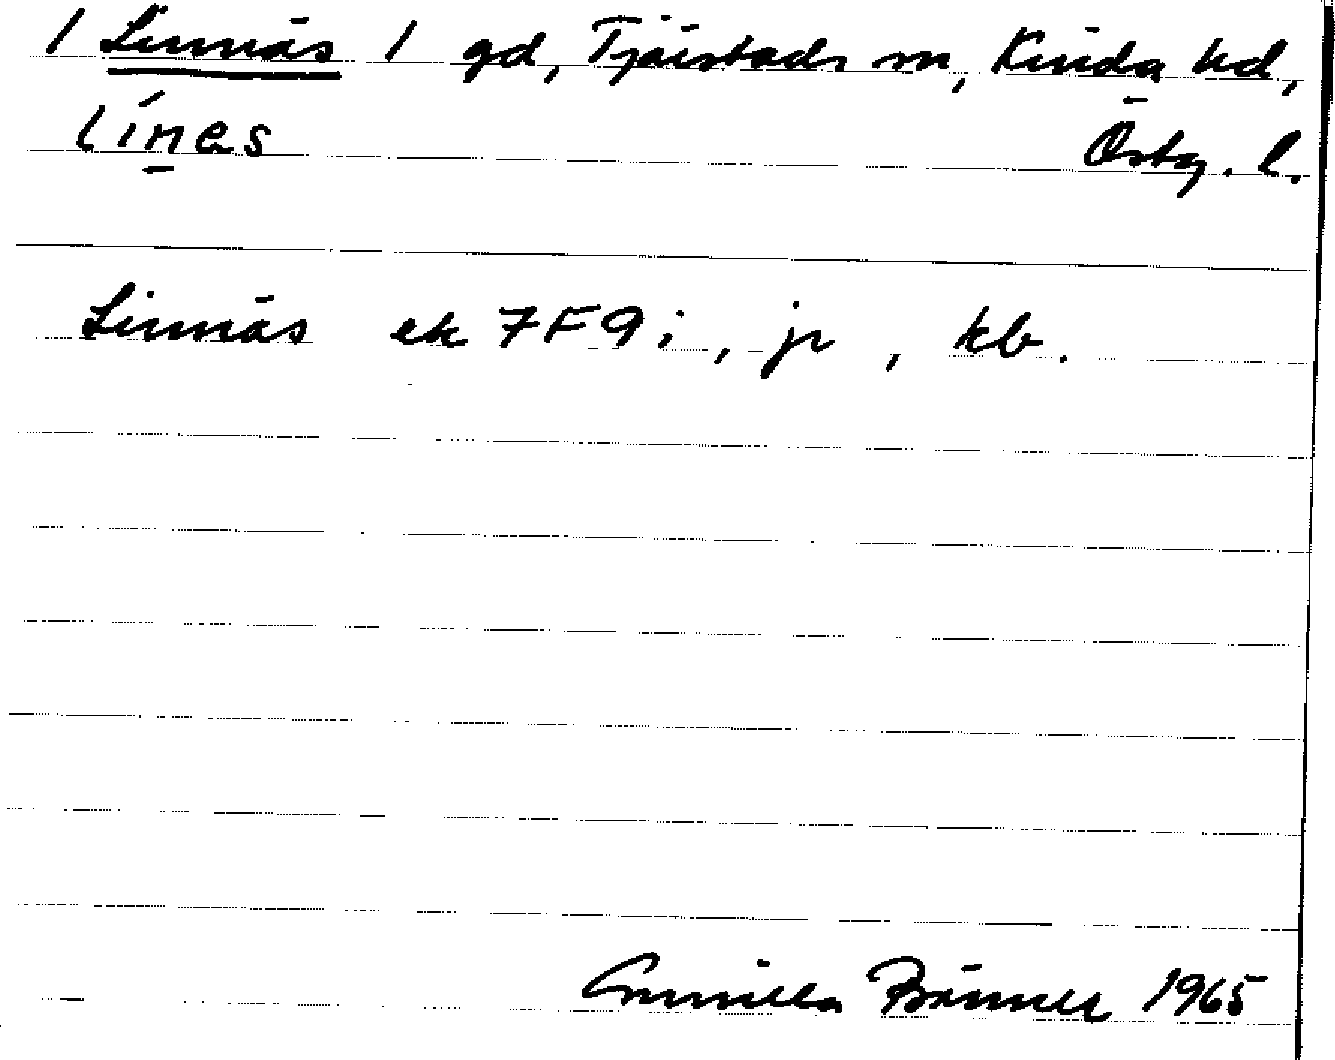 / Linnäs / gd, Tjärstads sn, Kinda hd,
línes Östg. l.
Linnäs ek 7F9i, jr, kb.
Gunilla Bränner 1965